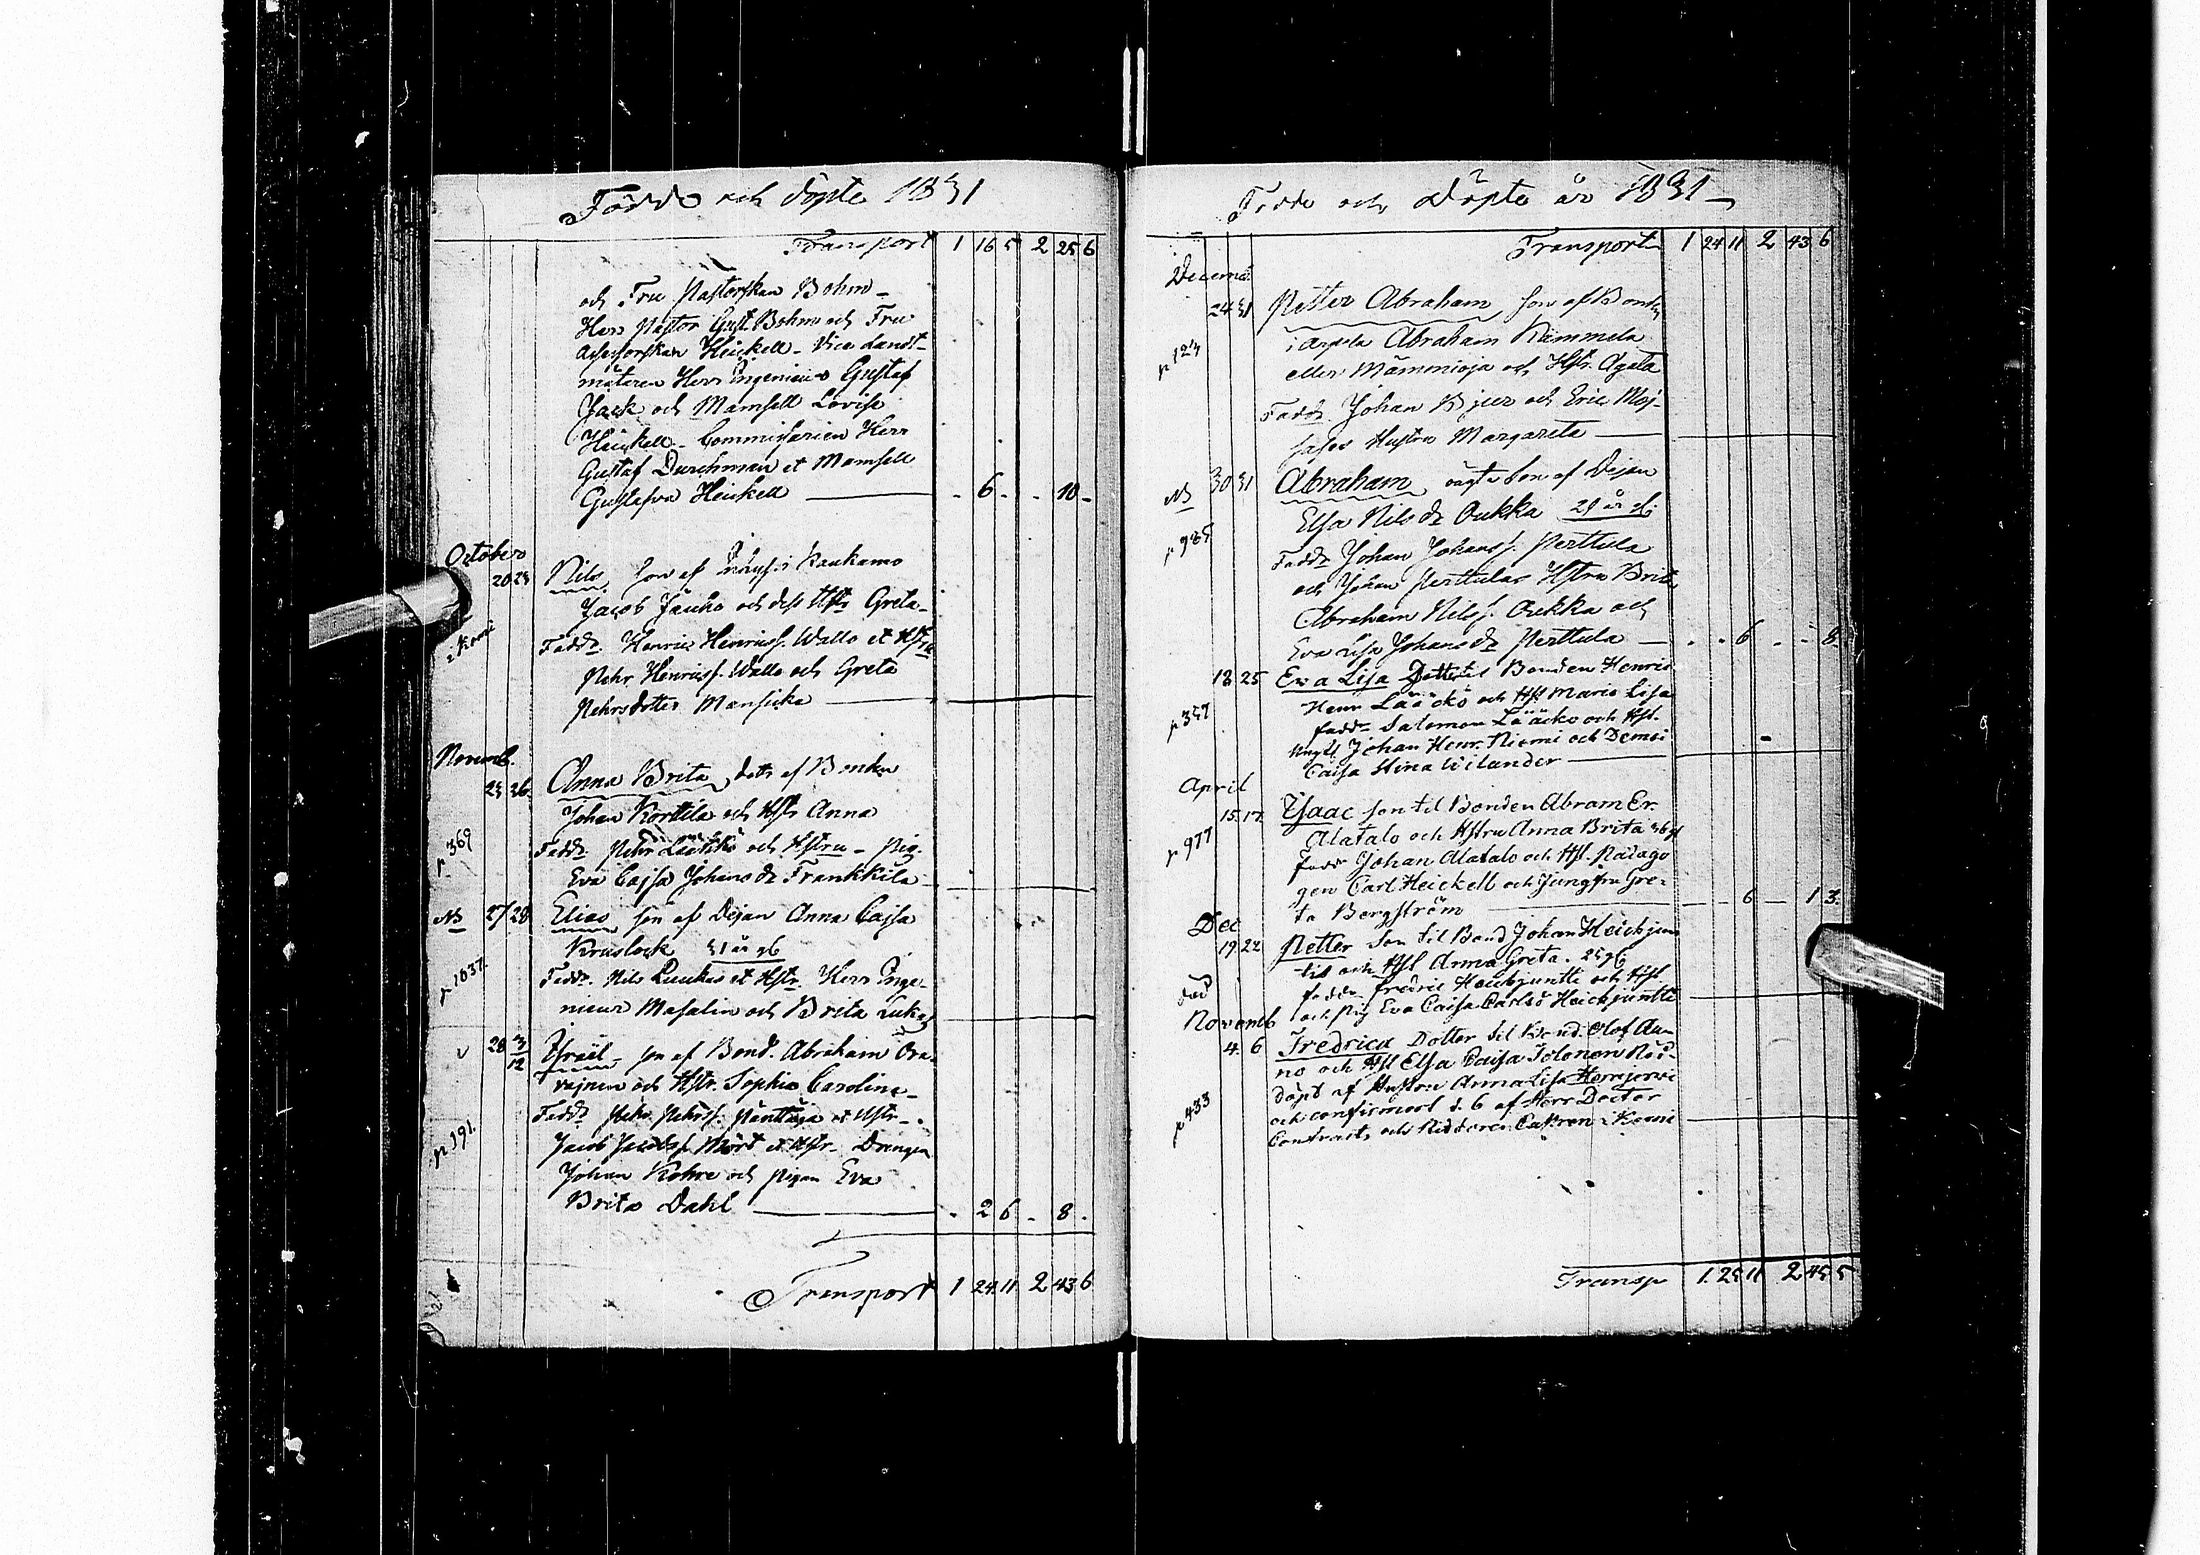 Födde och döpte 1831
Transport 1 16 5 2 25 6
och Fru Pastorskan Bohm -
Herr Pastor Gust. Bohm och Fru
Assessorskan Heickell - Vice Landt-
mätaren Herr Ingenieur Gustaf
Jack och Mamsell Lovisa
Heickell - Commissarien Herr
Gustaf Durchman et Mamsell
Gustafva Heickell - 6 - - 10 -
October
20 23 Nils son af i Kaukamo
Jacob och dess Hstr Greta -
i Kemi Faddr. Henric Henricss. Wallo et Hstru
Pehr Henricss. Wallo och Greta
Pehrsdotter Mansicka
Novemb.
23 26 Anna Brita, dottr af Bonden
Johan Korttila och Hstr Anna
p 369 Faddr. Pehr och Hstru - Pig.
Eva Cajsa Johansdr Frankkila
NB 27 28 Elias son af Dejan Anna Cajsa
Kruslock 31 år gl
p 1037. Faddr. Nils et Hstr. Herr Inge-
nieur Masalin och Brita Lukas
28 3/12 Israel - son af Bond. Abraham Ora-
vajnen och Hstr. Sophia Carolina -
Faddr Pehr Pehrss. et Hstr -
p 191. Jacob Jacobss. Mört et Hstr - Drengen
Johan Kohre och pigan Eva
Brita Dahl - 2 6 - 8 -
Transport 1 24 11 2 43 6
Födde och Döpte år 1831
Transport 1 24 11 2 43 6
Decemb.
24 31 Petter Abraham son af Bonden
i Arpela Abraham Kämmela
p 123 eller Mämmioja och Hstr. Agata
Faddr. Johan Bjur och Eric
Hustru Margareta
NB 30 31 Abraham oägta son af Dejan
Elsa Nilsdr Oukka 29 år gl.
p 985 Faddr Johan Johanss. Perttula
och Johan Perttulas Hstru Brita
Abraham Nilss. Oukka och
Eva Lisa Johansdr Perttula - - 6 - - 8
18 25 Eva Lisa Dotter til Bonden Henric
Henr Lääckö och Hst Maria Lisa
p 357 faddr Salomon Lääcko och Hst.
Yngl Johan Henr. Niemi och Demoi
Caisa Stina Wilander
April
15 17 Isaac son til Bonden Abram Er.
Alatalo och Hstru Anna Brita 36 gl
p 977 faddr Johan Alatalo och Hst. Pädago
gen Carl Heickell och Jungfru Gre-
ta Bergström 6 - 1 3
Dec
19 22 Petter Son til Bond Johan Heickjun
tti och Hst Anna Greta. 25 gl
faddr Fredric Heickjuntti och Hst
och Pig Eva Caisa Carlsd Heickjuntti
Novemb
4. 6 Fredrica Dotter til Bond. Olof Au-
no och Hst Elsa Caisa Tolonen Nöd-
p 433 döpt af Hustru Anna Lisa Hemjerwi
och confirmert d. 6 af Herr Doctor
Contracts och Riddaren Castren i Kemi
Transp 1. 25 11 2 45 5